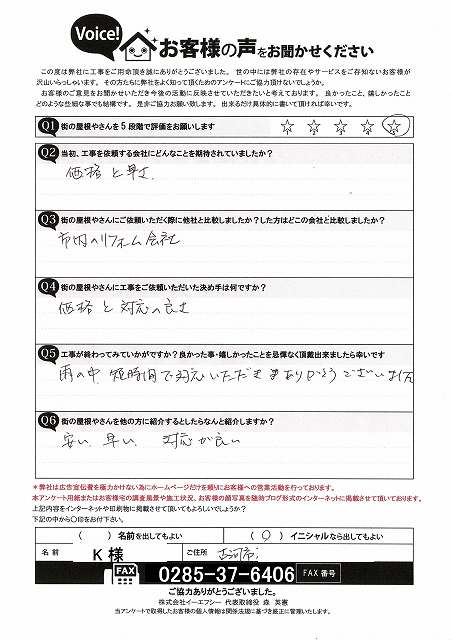 Voice!
お客様の声をお聞かせください
この度は弊社に工事をご用命頂き誠にありがとうございました。 世の中には弊社の存在やサービスをご存知ないお客様が
沢山いらっしゃいます。 その方たちに弊社をよく知って頂くためのアンケートにご協力頂けないでしょうか。
お客様のご意見をお聞かせいただき今後の活動に反映させていただきたいと考えております。 良かったこと、嬉しかったこと
どのような些細な事でも結構です。 是非ご協力お願い致します。 出来るだけ具体的に書いて頂ければ幸いです。
Q1 街の屋根やさんを5段階で評価をお願いします
☆1 ☆2 ☆3 ☆4 ☆5
Q2 当初、工事を依頼する会社にどんなことを期待されていましたか?
価格と早さ
Q3 街の屋根やさんにご依頼いただく際に他社と比較しましたか?した方はどこの会社と比較しましたか?
市内のリフォーム会社
Q4 街の屋根やさんに工事をご依頼いただいた決め手は何ですか?
価格と対応の良さ
Q5 工事が終わってみていかがですか?良かった事・嬉しかったことを忌憚なく頂戴出来ましたら幸いです
雨の中、短時間で対応いただきありがとうございました
Q6 街の屋根やさんを他の方に紹介するとしたらなんと紹介しますか?
安い、早い、対応が良い
*弊社は広告宣伝費を極力かけない為にホームページだけを頼りにお客様への営業活動を行っております。
本アンケート用紙またはお客様宅の調査風景や施工状況、お客様の顔写真を随時ブログ形式のインターネットに掲載させて頂いております。
上記内容をインターネットや印刷物に掲載させて頂いてもよろしいでしょうか?
下記の中から○印をお付下さい。
( ) 名前を出してもよい ( ○ ) イニシャルなら出してもよい
名前 K様 ご住所 古河市
FAX 0285-37-6406 FAX番号
ご協力ありがとうございました。
株式会社イーエフシー 代表取締役 森 英憲
当アンケートで取得したお客様の個人情報は関係法規に基づき厳正に管理いたします。